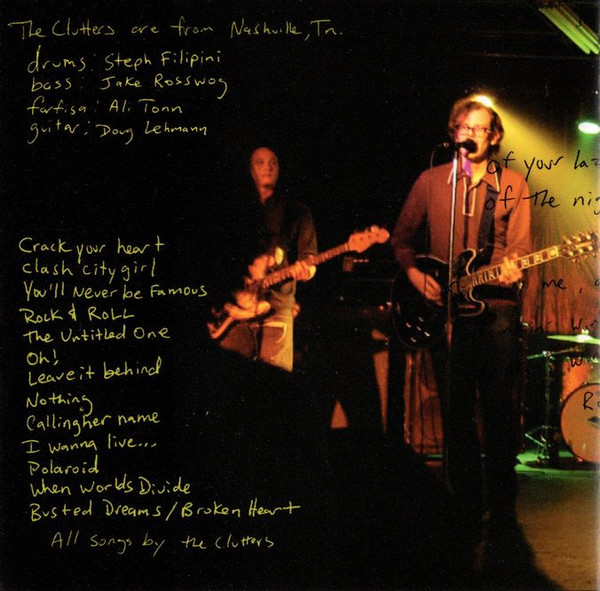 The Clutters are from Nashville, Tn.
drums: Steph Filipini
bass: Jake Rosswog
farfisa: Ali Tonn
guitar: Doug Lehmann
Crack your heart
Clash city girl
You'll Never be Famous
Rock & Roll
The Untitled One
Oh!
Leave it behind
Nothing
Calling her name
I wanna live...
Polaroid
When Worlds Divide
Busted Dreams/Broken Heart
All songs by the Clutters
of your
of the
me,